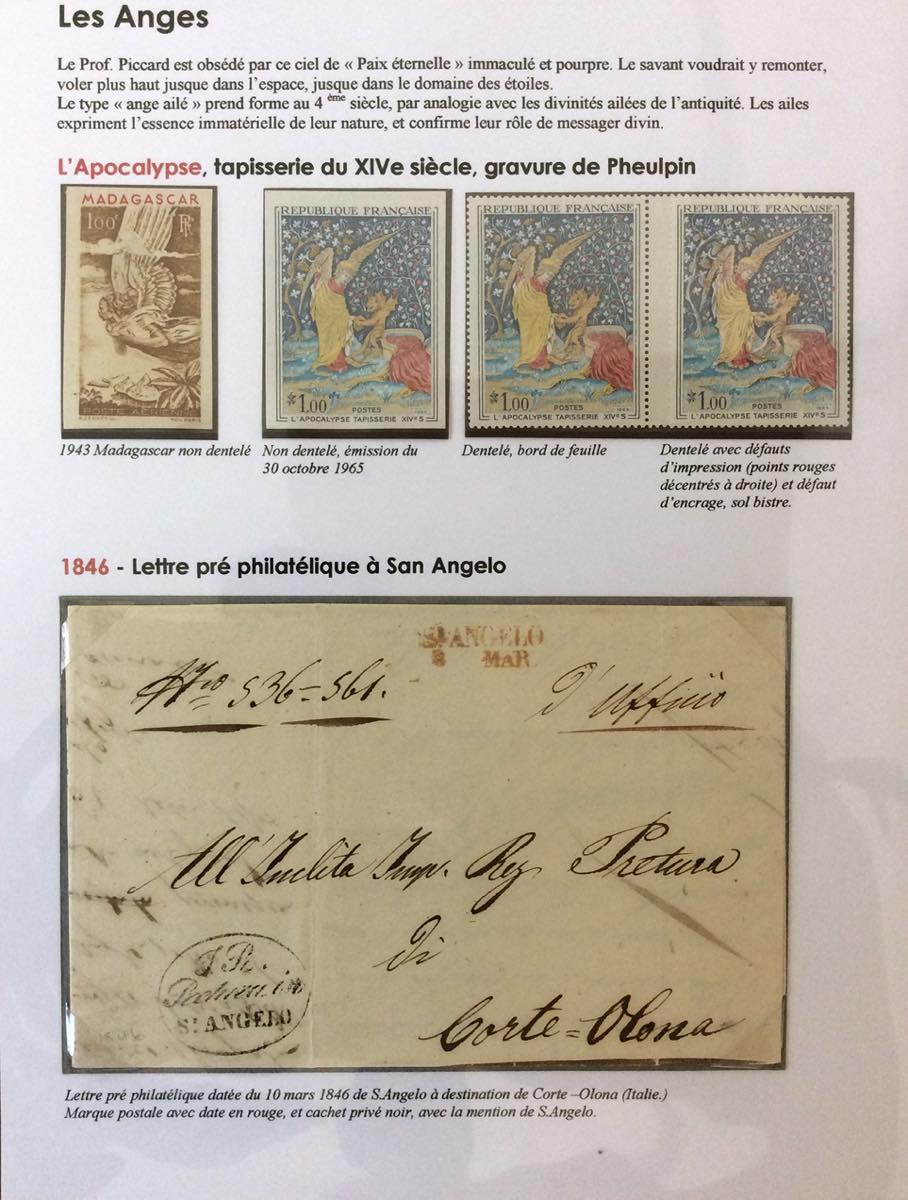 Les Anges
Le Prof. Piccard est obsédé par ce ciel de « Paix éternelle » immaculé et pourpre. Le savant voudrait y remonter,
voler plus haut jusque dans l'espace, jusque dans le domaine des étoiles.
Le type « ange ailé » prend forme au 4 ème siècle, par analogie avec les divinités ailées de l'antiquité. Les ailes
expriment l'essence immatérielle de leur nature, et confirme leur rôle de messager divin.
L'Apocalypse, tapisserie du XIVe siècle, gravure de Pheulpin
MADAGASCAR
100F RF
POSTE AERIENNE
REPUBLIQUE FRANÇAISE
1.00 POSTES
L'APOCALYPSE TAPISSERIE XIVe S
REPUBLIQUE FRANÇAISE
1.00 POSTES
L'APOCALYPSE TAPISSERIE XIVe S
REPUBLIQUE FRANÇAISE
1.00 POSTES
L'APOCALYPSE TAPISSERIE XIVe S
1943 Madagascar non dentelé
Non dentelé, émission du
30 octobre 1965
Dentelé, bord de feuille
Dentelé avec défauts
d'impression (points rouges
décentrés à droite) et défaut
d'encrage, sol bistre.
1846 - Lettre pré philatélique à San Angelo
S. ANGELO
MAR.
536=561.
D'Uffizio
All'Inclita Imp. Reg Pretura
Di
Corte=Olona
I.R.
Pretura in
S. ANGELO
Lettre pré philatélique datée du 10 mars 1846 de S.Angelo à destination de Corte –Olona (Italie.)
Marque postale avec date en rouge, et cachet privé noir, avec la mention de S.Angelo.